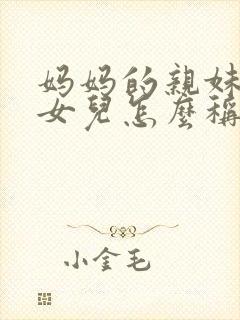 妈妈的親妹
女兒怎麼稱
小金毛